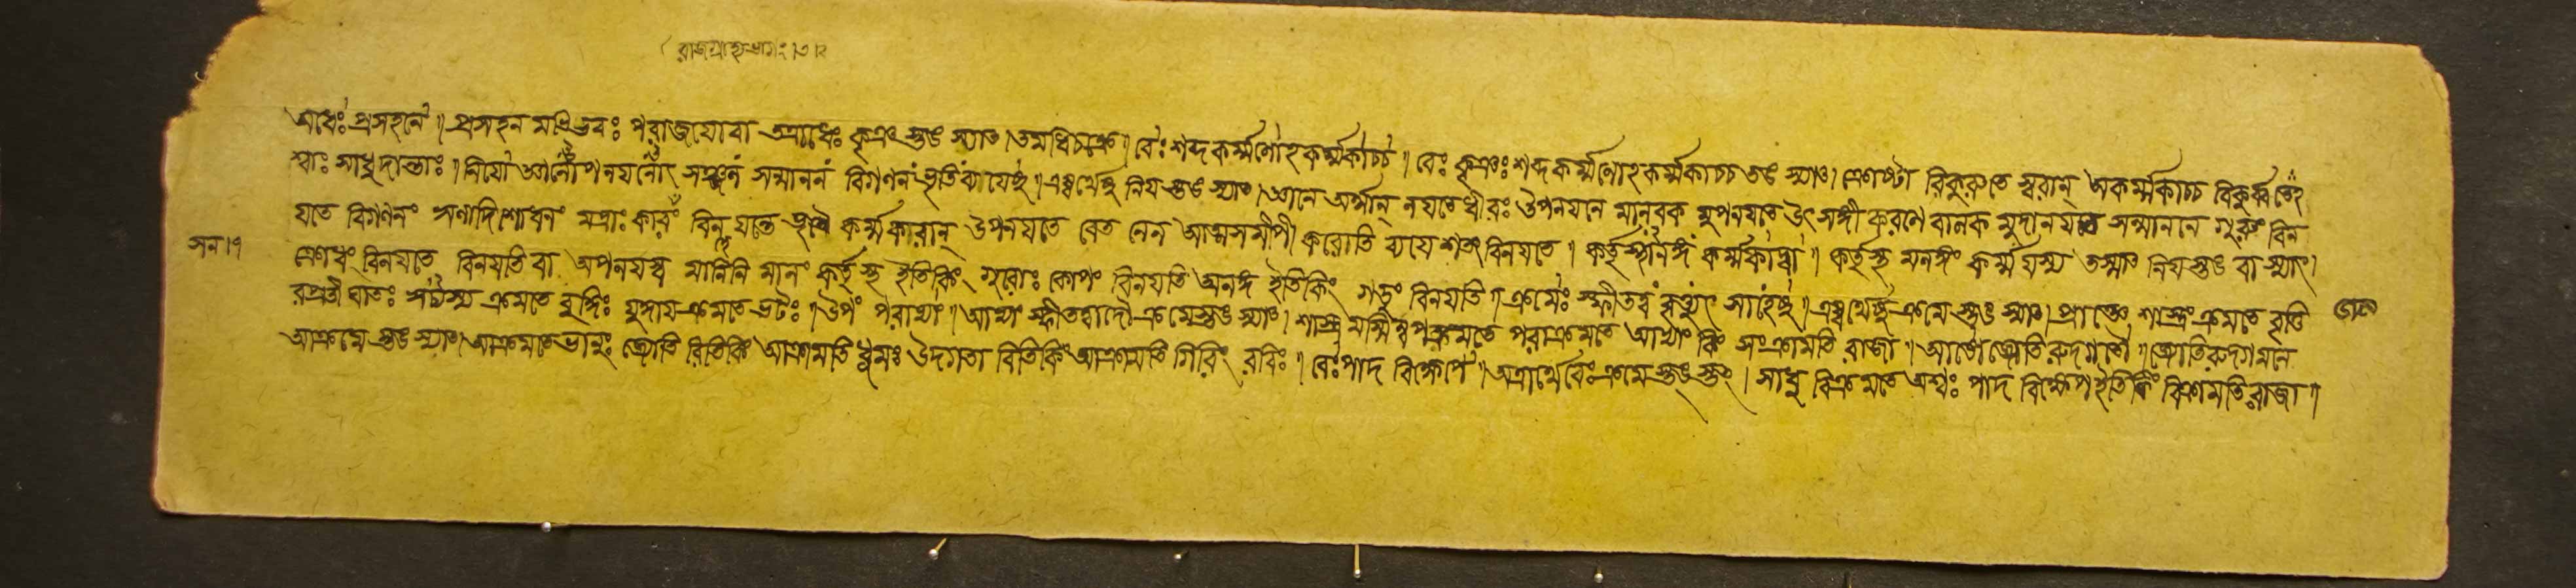 রাজগ্রাহ্যভাগঃ
অধেঃ প্রসহনে॥ প্রসহন মভিভবঃ পরাজযোবা অধেঃ কৃঞ স্তঙ স্যাত। তমধিচক্রে॥ বেঃ শব্দ কর্ম্মণোহকর্ম্মকাচ্চ॥ বেঃ কৃঞঃ শব্দ কর্ম্মণোহকর্ম্মকাচ্চ তঙ স্যাৎ। ক্রোষ্টা বিকুরুতে স্বরান্ অকর্ম্মকাচ্চ বিকুর্ব্বতেহ
শ্বাঃ সাধুদান্তাঃ॥ নিযো জ্ঞানোপনযনোৎ সঞ্জনং সম্মাননং বিগণনং ভৃতিং ব্যযেষু॥ এষ্বর্থেষু নিয স্তঙ স্যাৎ। জ্ঞানে অর্থান্ নযতে ধীরঃ উপনযনে মানবক মুপনযতে উৎসঙ্গী করণে বালক মুদানযতে সম্মাননে গুরুং বিন
যতে বিগণনং ঋণাদিশোধনং মদ্রাঃ কারং বিনযন্তে ভৃতৌ কর্ম্মকারান্ উপনযতে বেত নেন আত্মসমীপী করোতি ব্যযে শতং বিনযতে॥ কর্তৃস্থানঙ্গ কর্ম্মকাদ্বা॥ কর্তৃস্থ মনঙ্গং কর্ম্ম যস্য তস্মাৎ নিযস্তঙ বা স্যাৎ।
সন।৭ ক্রোধং বিনযতে বিনযতি বা অপনযস্ব মানিনি মানং কর্তৃস্থ ইতিকিং গুরোঃ কোপং বিনযতি অনঙ্গ ইতিকিং গডুং বিনযতি॥ ক্রমেঃ স্ফীতত্বং সাহেষু॥ এষ্বর্থেষু ক্রমে স্তঙ স্যাৎ। প্রাজ্ঞে শাস্ত্রং ক্রমতে বৃত্তি
রপ্রতী ঘাতঃ ক্রমতে বুদ্ধিঃ যুদ্ধায ক্রমতে ভটঃ॥ উপ পরাভ্যাং॥ আভ্যাং স্ফীতত্বাদৌ ক্রমেস্তঙ স্যাৎ। শাস্ত্র মস্মিন্নুপক্রমতে পরাক্রমতে আভ্যাং কিং সংক্রামতি রাজা॥ আঙো জ্যোতিরুদ্গতৌ॥ জ্যোতিরুদ্গমনে
আক্রমে স্তঙ স্যাৎ। আক্রমতে ভানুঃ জ্যোতি রিতিকিং আক্রামতি ধূমঃ উদগতা বিতিকিং আক্রামতি গিরিং রবিঃ॥ বেঃ পাদ বিক্ষেপে॥ অত্রার্থে বেঃ ক্রমে স্তঙ স্যাৎ। সাধু বিক্রমতে অশ্বঃ পাদ বিক্ষেপ ইতিকিং বিক্রামতি রাজা॥